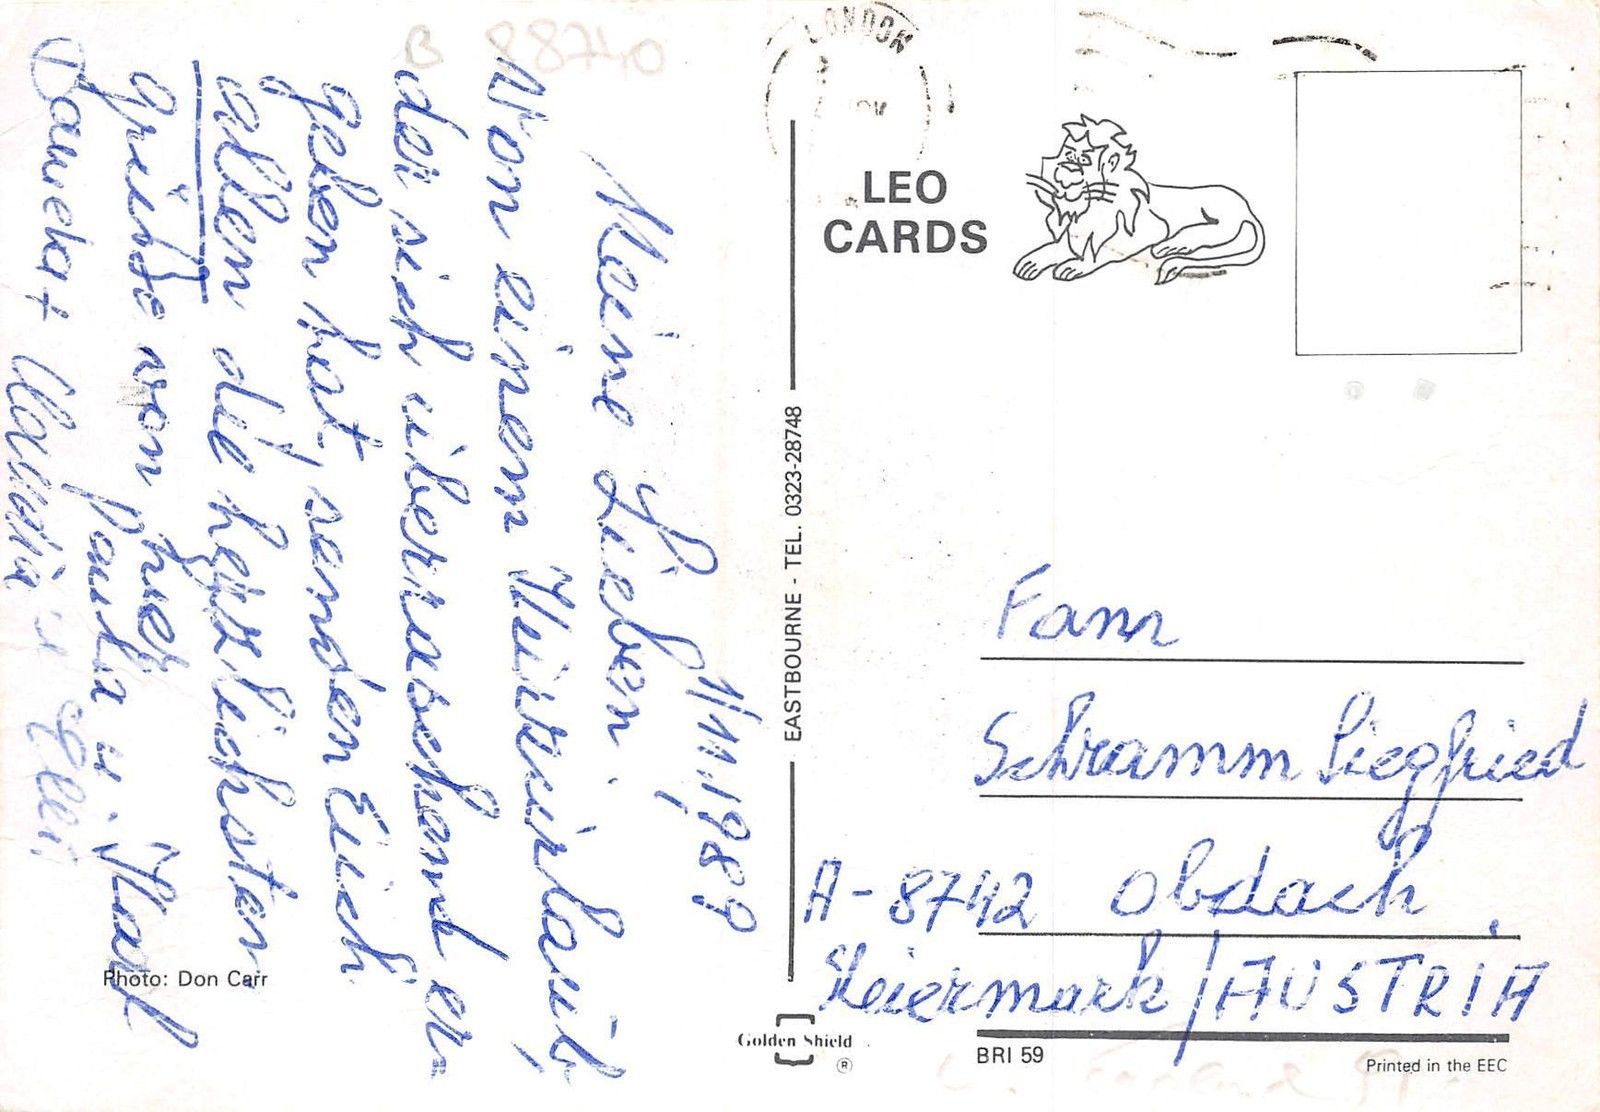 B 88740
1/11.1989
Meine Lieben!
Von einem Kurzurlaub,
der sich überraschend er
geben hat, senden Euch
allen die herzlichsten
Grüße von hier
Paula u. Karl
Daniela +
LONDON
LEO
CARDS
EASTBOURNE - TEL. 0323-28748
Fam
Schramm Siegfried
A-8742 Obdach
Steiermark/AUSTRIA
Photo: Don Carr
Golden Shield
®
BRI 59
Printed in the EEC